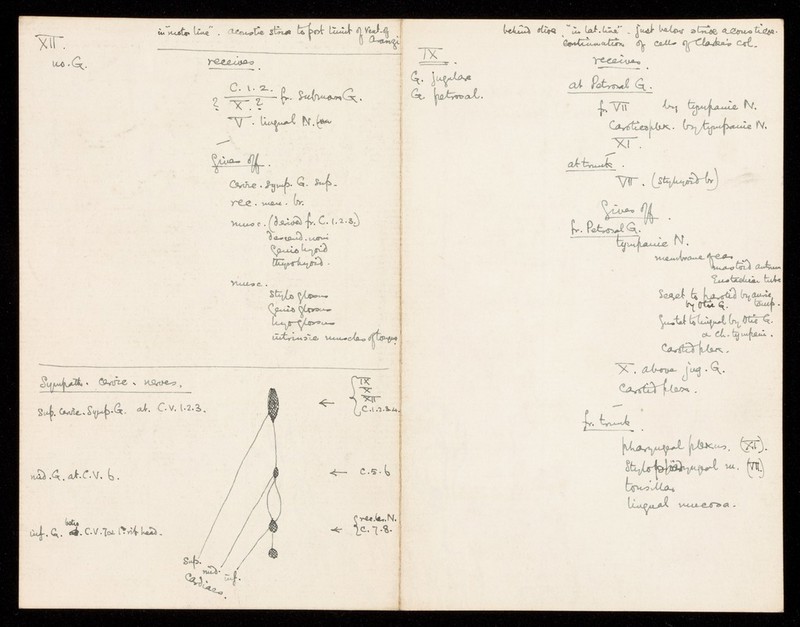 XII.
in "motor line". acoustic striae to post limit of vent. of Arangi
no. G.
receives.
C. 1. 2.
? X. ? fr. Submax G.
V. lingual N.
Gives off.
Cervic. Symp. G. Sup.
rec. men. br.
musc. (derived fr. C. 1. 2. 3.)
descend. noni
Genio hyoid
thyrohyoid.
musc.
Stylo glossus
Genio glossus
hyo glossus
intrinsic muscles of tongue
Sympath. Cervic. nerves.
Sup. Cervic. Symp. G. at. C.V. 1. 2. 3.
IX
X
XII
C. 1. 2. 3. 4.
mid. G. at. C.V. 6.
C. 5. 6
inf. G. betw. C.V. 7 & 1st rib head.
rec. la. N.
C. 7. 8.
Sup. mid. inf.
Cardiacs.
behind olive. "in lat. line". Just below striae acousticae.
continuation of cells of Clarke's Col.
IX.
G. jugulare
G. petrosal.
receives
at Petrosal G.
fr. VII by tympanic N.
Carotic plex. by tympanic N.
XI.
at trunk.
VII. (Stylohyoid br)
Gives off.
fr. Petrosal G.
tympanic N.
membrane of ear
mastoid antrum
Eustachian tube
Secret to parotid by auric. temp.
by Otic G.
Gustat to lingual by Otic G.
or Ch. tympani.
Carotid plex.
X. above jug. G.
Carotid plex.
fr. trunk.
pharyngeal plexus. (XI).
Stylo pharyngeal m. (VII)
tonsillar
lingual mucosa.